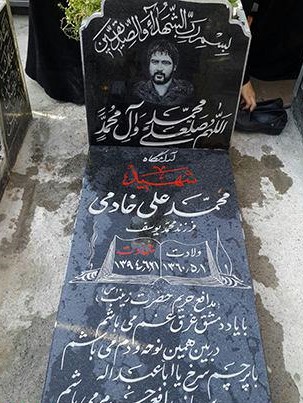 بسم رب الشهداء والصدیقین
اللهم صل علی محمد وآل محمد
آرامگاه
شهید
محمد علی خادمی
فرزند محمد یوسف
ولادت شهادت
۱۳۶۰،۵،۱ ۱۳۹۴،۶،۲۱
مدافع حریم حضرت زینب (س)
با یاد دمشق غرق غم می باشم
در بین همین نوحه و دم می باشم
با پرچم سرخ یا ابا عبدالله
حرم می باشم